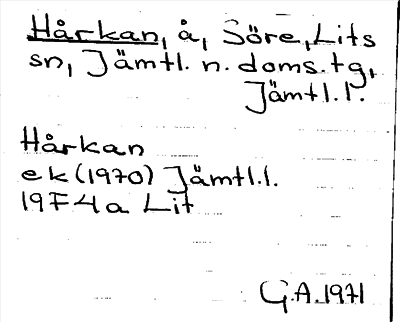 Hårkan, å, Söre, Lits
sn, Jämtl. n. doms. tg,
Jämtl. l.
Hårkan
ek (1970) Jämtl. l.
19F4a Lit
G.A. 1971